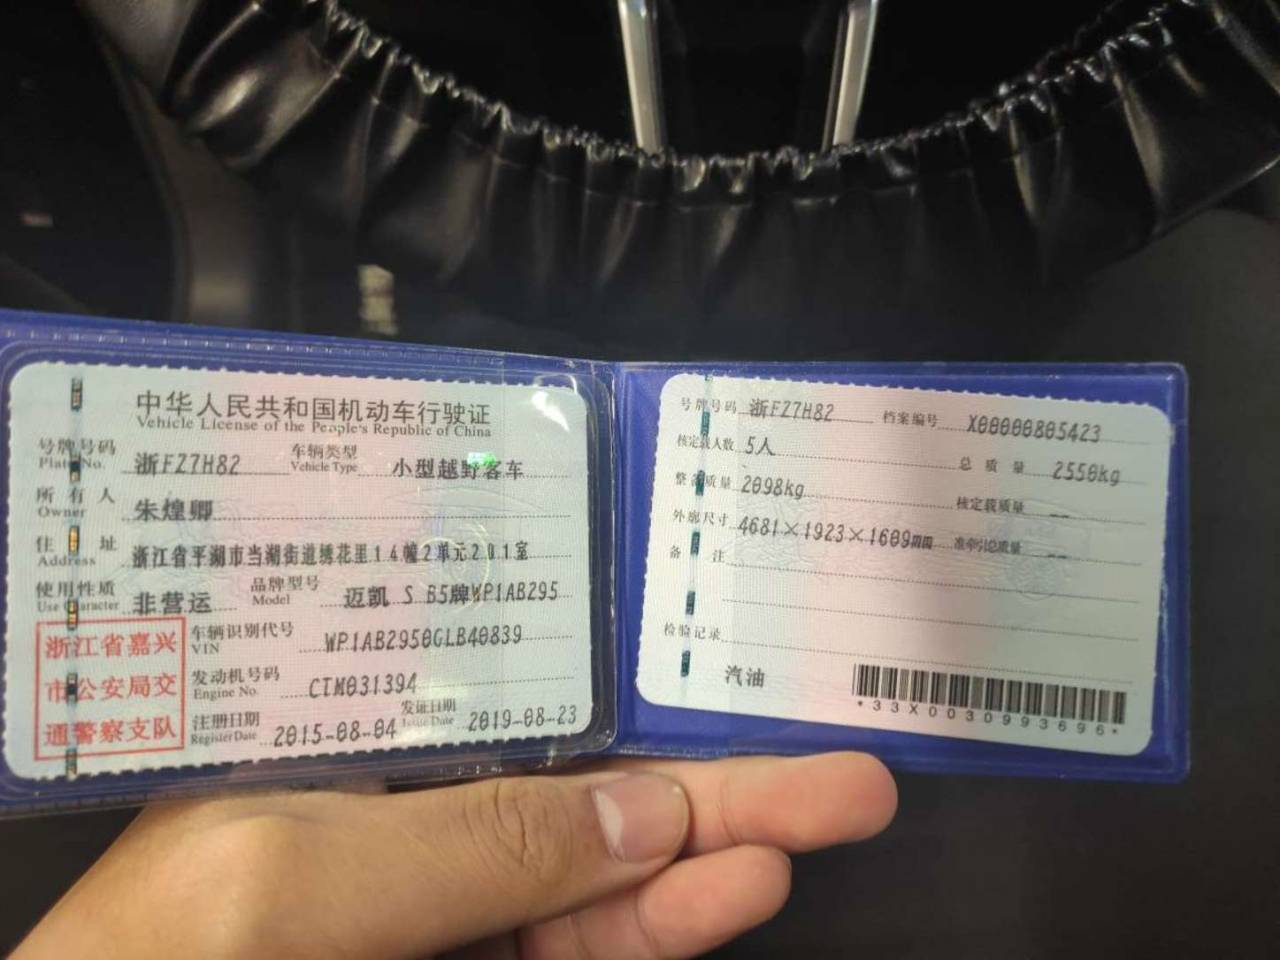 中华人民共和国机动车行驶证
Vehicle License of the People's Republic of China
号牌号码 浙FZ7H82 车辆类型 小型越野客车
Plate No. Vehicle Type
所有人 朱煌卿
Owner
住址 浙江省平湖市当湖街道绣花里14幢2单元201室
Address
使用性质 非营运 品牌型号 迈凯 S B5牌WP1AB295
Use Character Model
浙江省嘉兴
市公安局交
通警察支队
车辆识别代号 WP1AB2950GLB40839
VIN
发动机号码 CTM031394
Engine No.
注册日期 2015-08-04 发证日期 2019-08-23
Register Date Issue Date
号牌号码 浙FZ7H82 档案编号 X00000805423
核定载人数 5人 总质量 2550kg
整备质量 2098kg 核定载质量 --
外廓尺寸 4681×1923×1609mm 准牵引总质量 --
备注
检验记录
汽油
*33X0030993696*